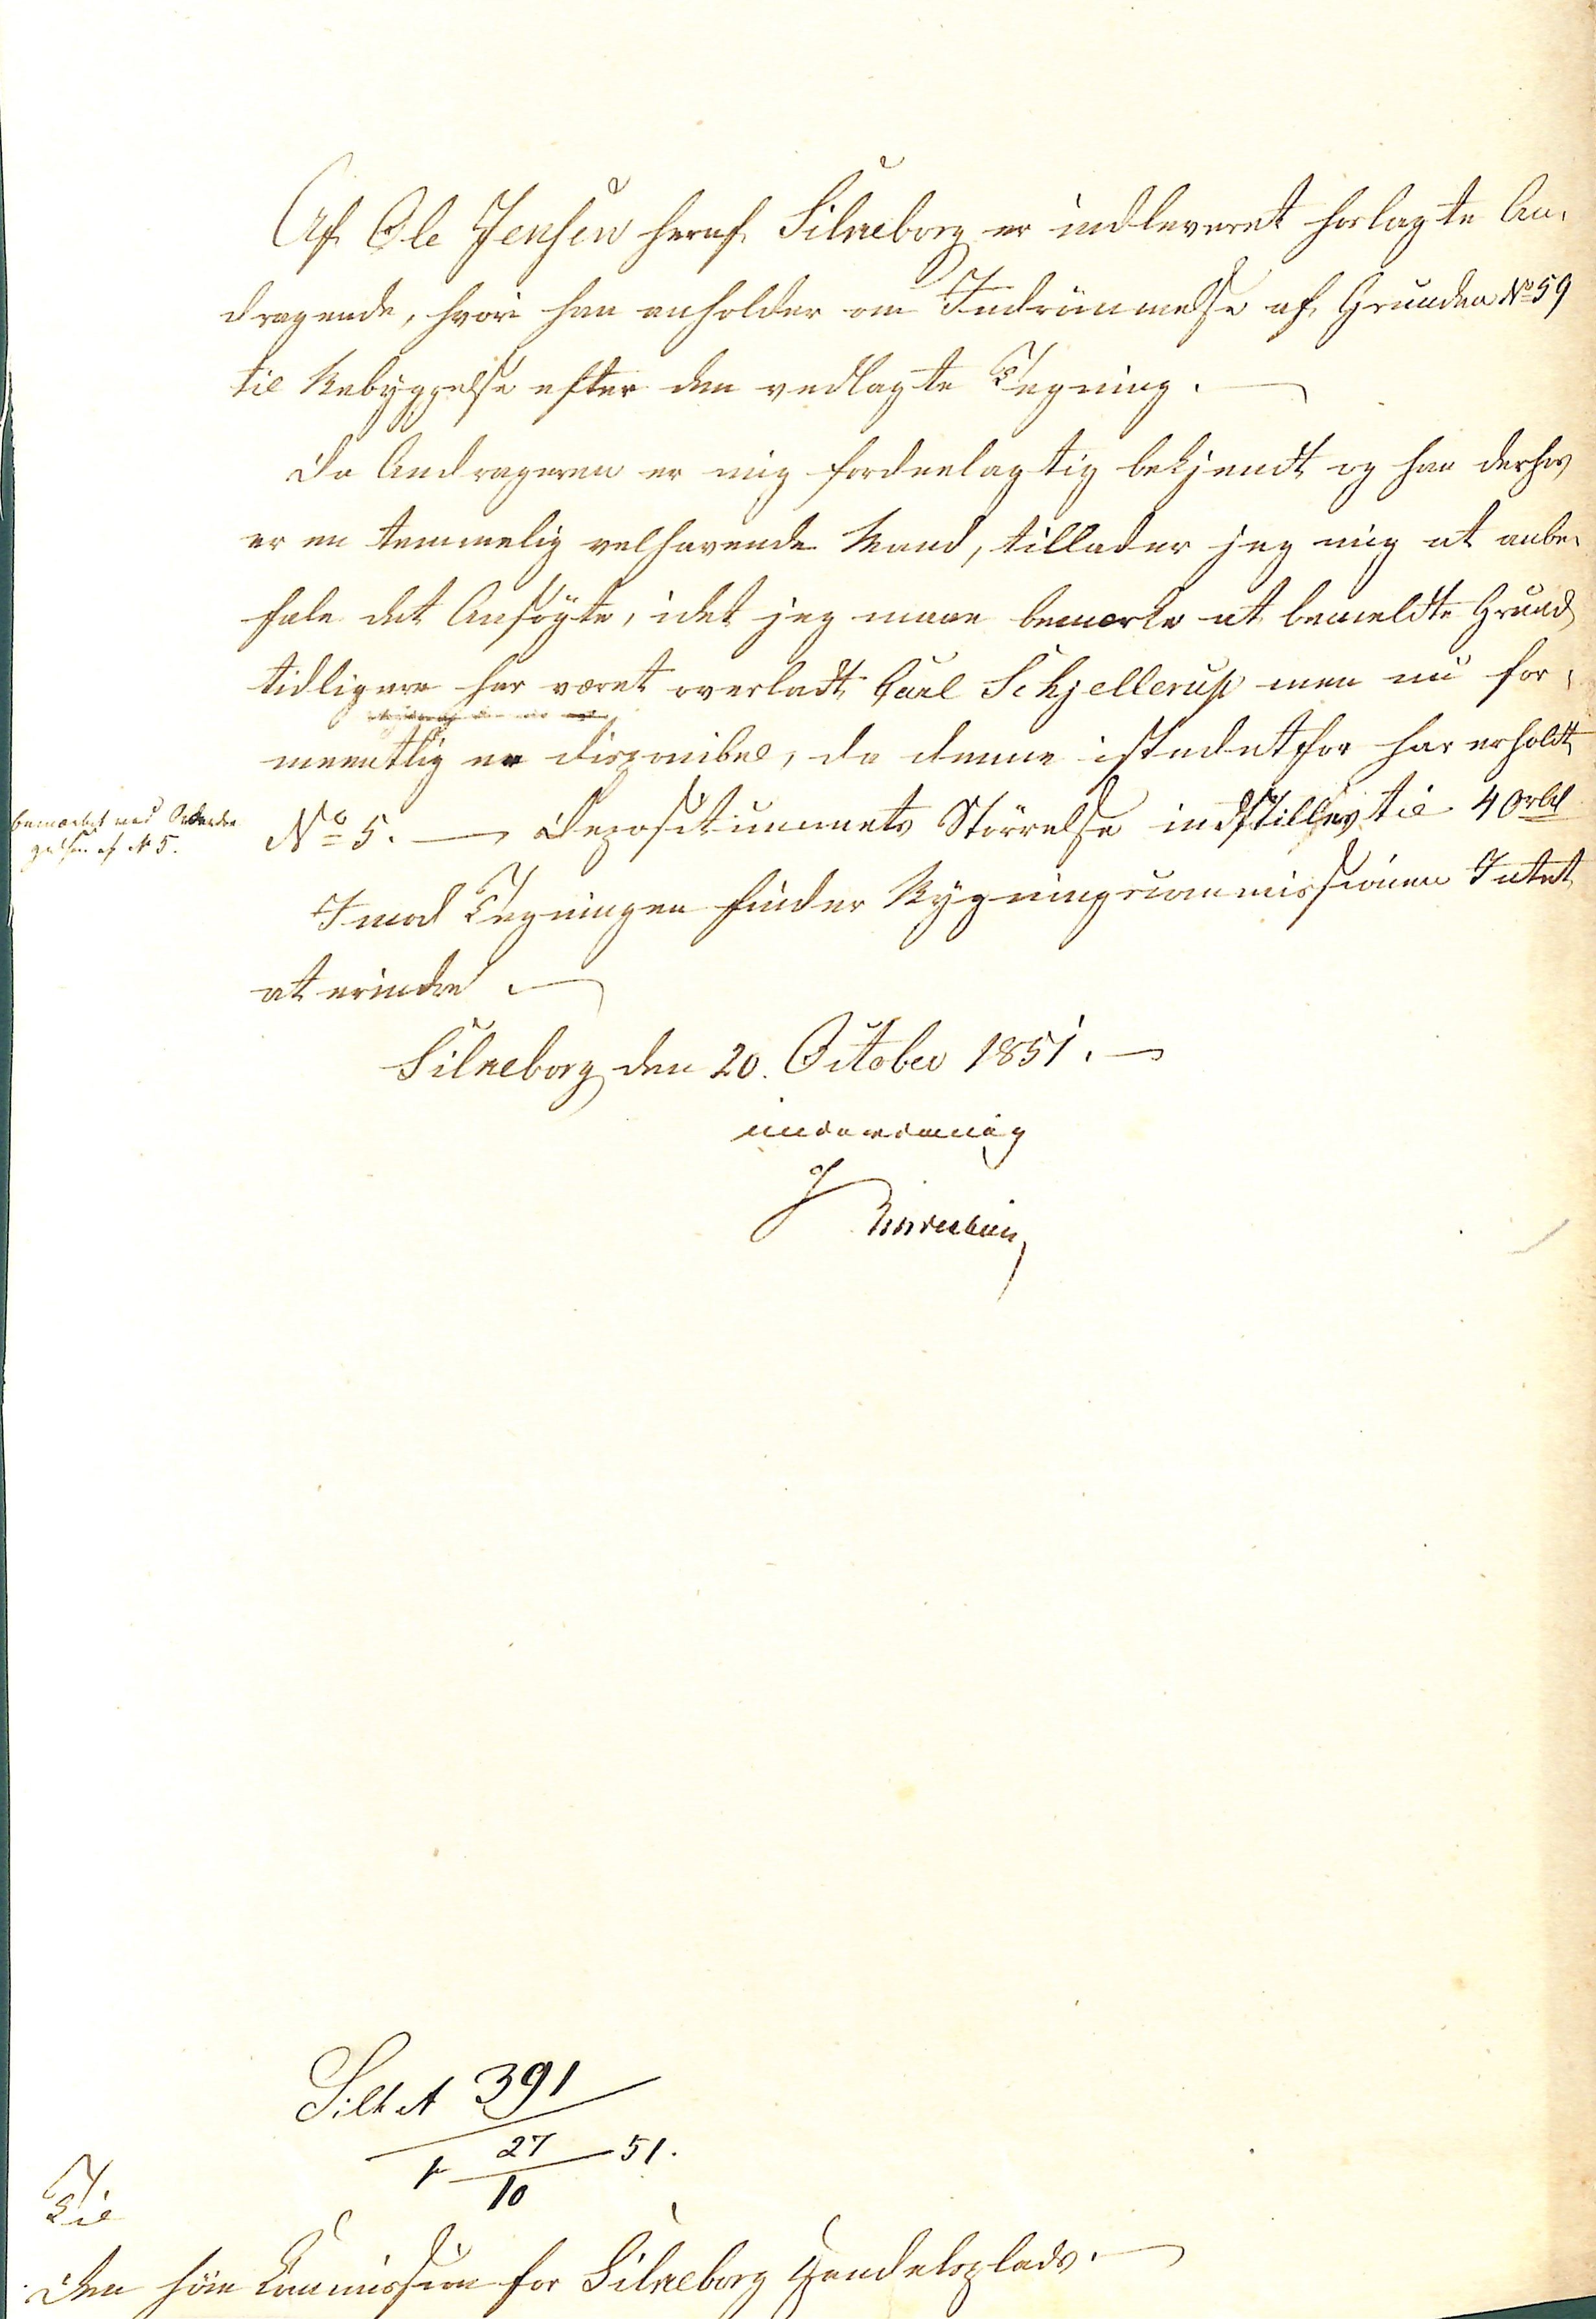 Af Ole Jensen heraf Silkeborg er indleveret hoslagte An-
dragende, hvori han anholder om Indrömmelse af Grunden No 59
til Bebyggelse efter den vedlagte Tegning. —
Da Andrageren er mig fordeelagtig bekjendt og han derhos
er en temmelig velhavende Mand, tillader jeg mig at anbe-
fale det Ansögte, idet jeg maae bemærke at bemeldte Grund
tidligere har været overladt Carl Schjellerup men nu for-
meentlig er disponibel, da denne istedetfor har erholdt
No 5. — Depositummets Störrelse indstilles til 40 rbd
bemærket ved
af No 5.
Imod Tegningen finder Bygningscommissionen Intet
at erindre. —
Silkeborg den 20. October 1851. —
underdanig
Silk A 391
27/10 51.
Til
Den höie Commission for Silkeborg Handelsplads. —